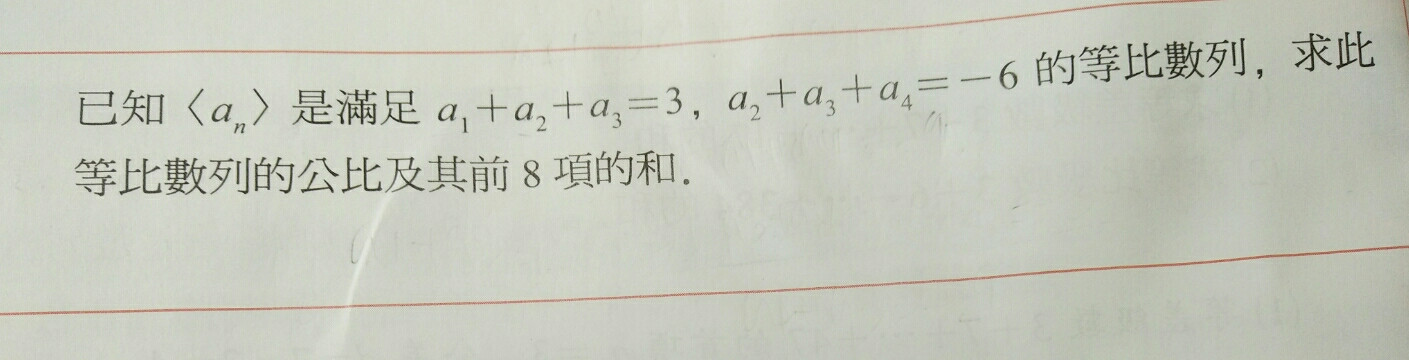 已知〈aₙ〉是滿足 a₁+a₂+a₃=3, a₂+a₃+a₄=-6 的等比數列, 求此
等比數列的公比及其前 8 項的和.